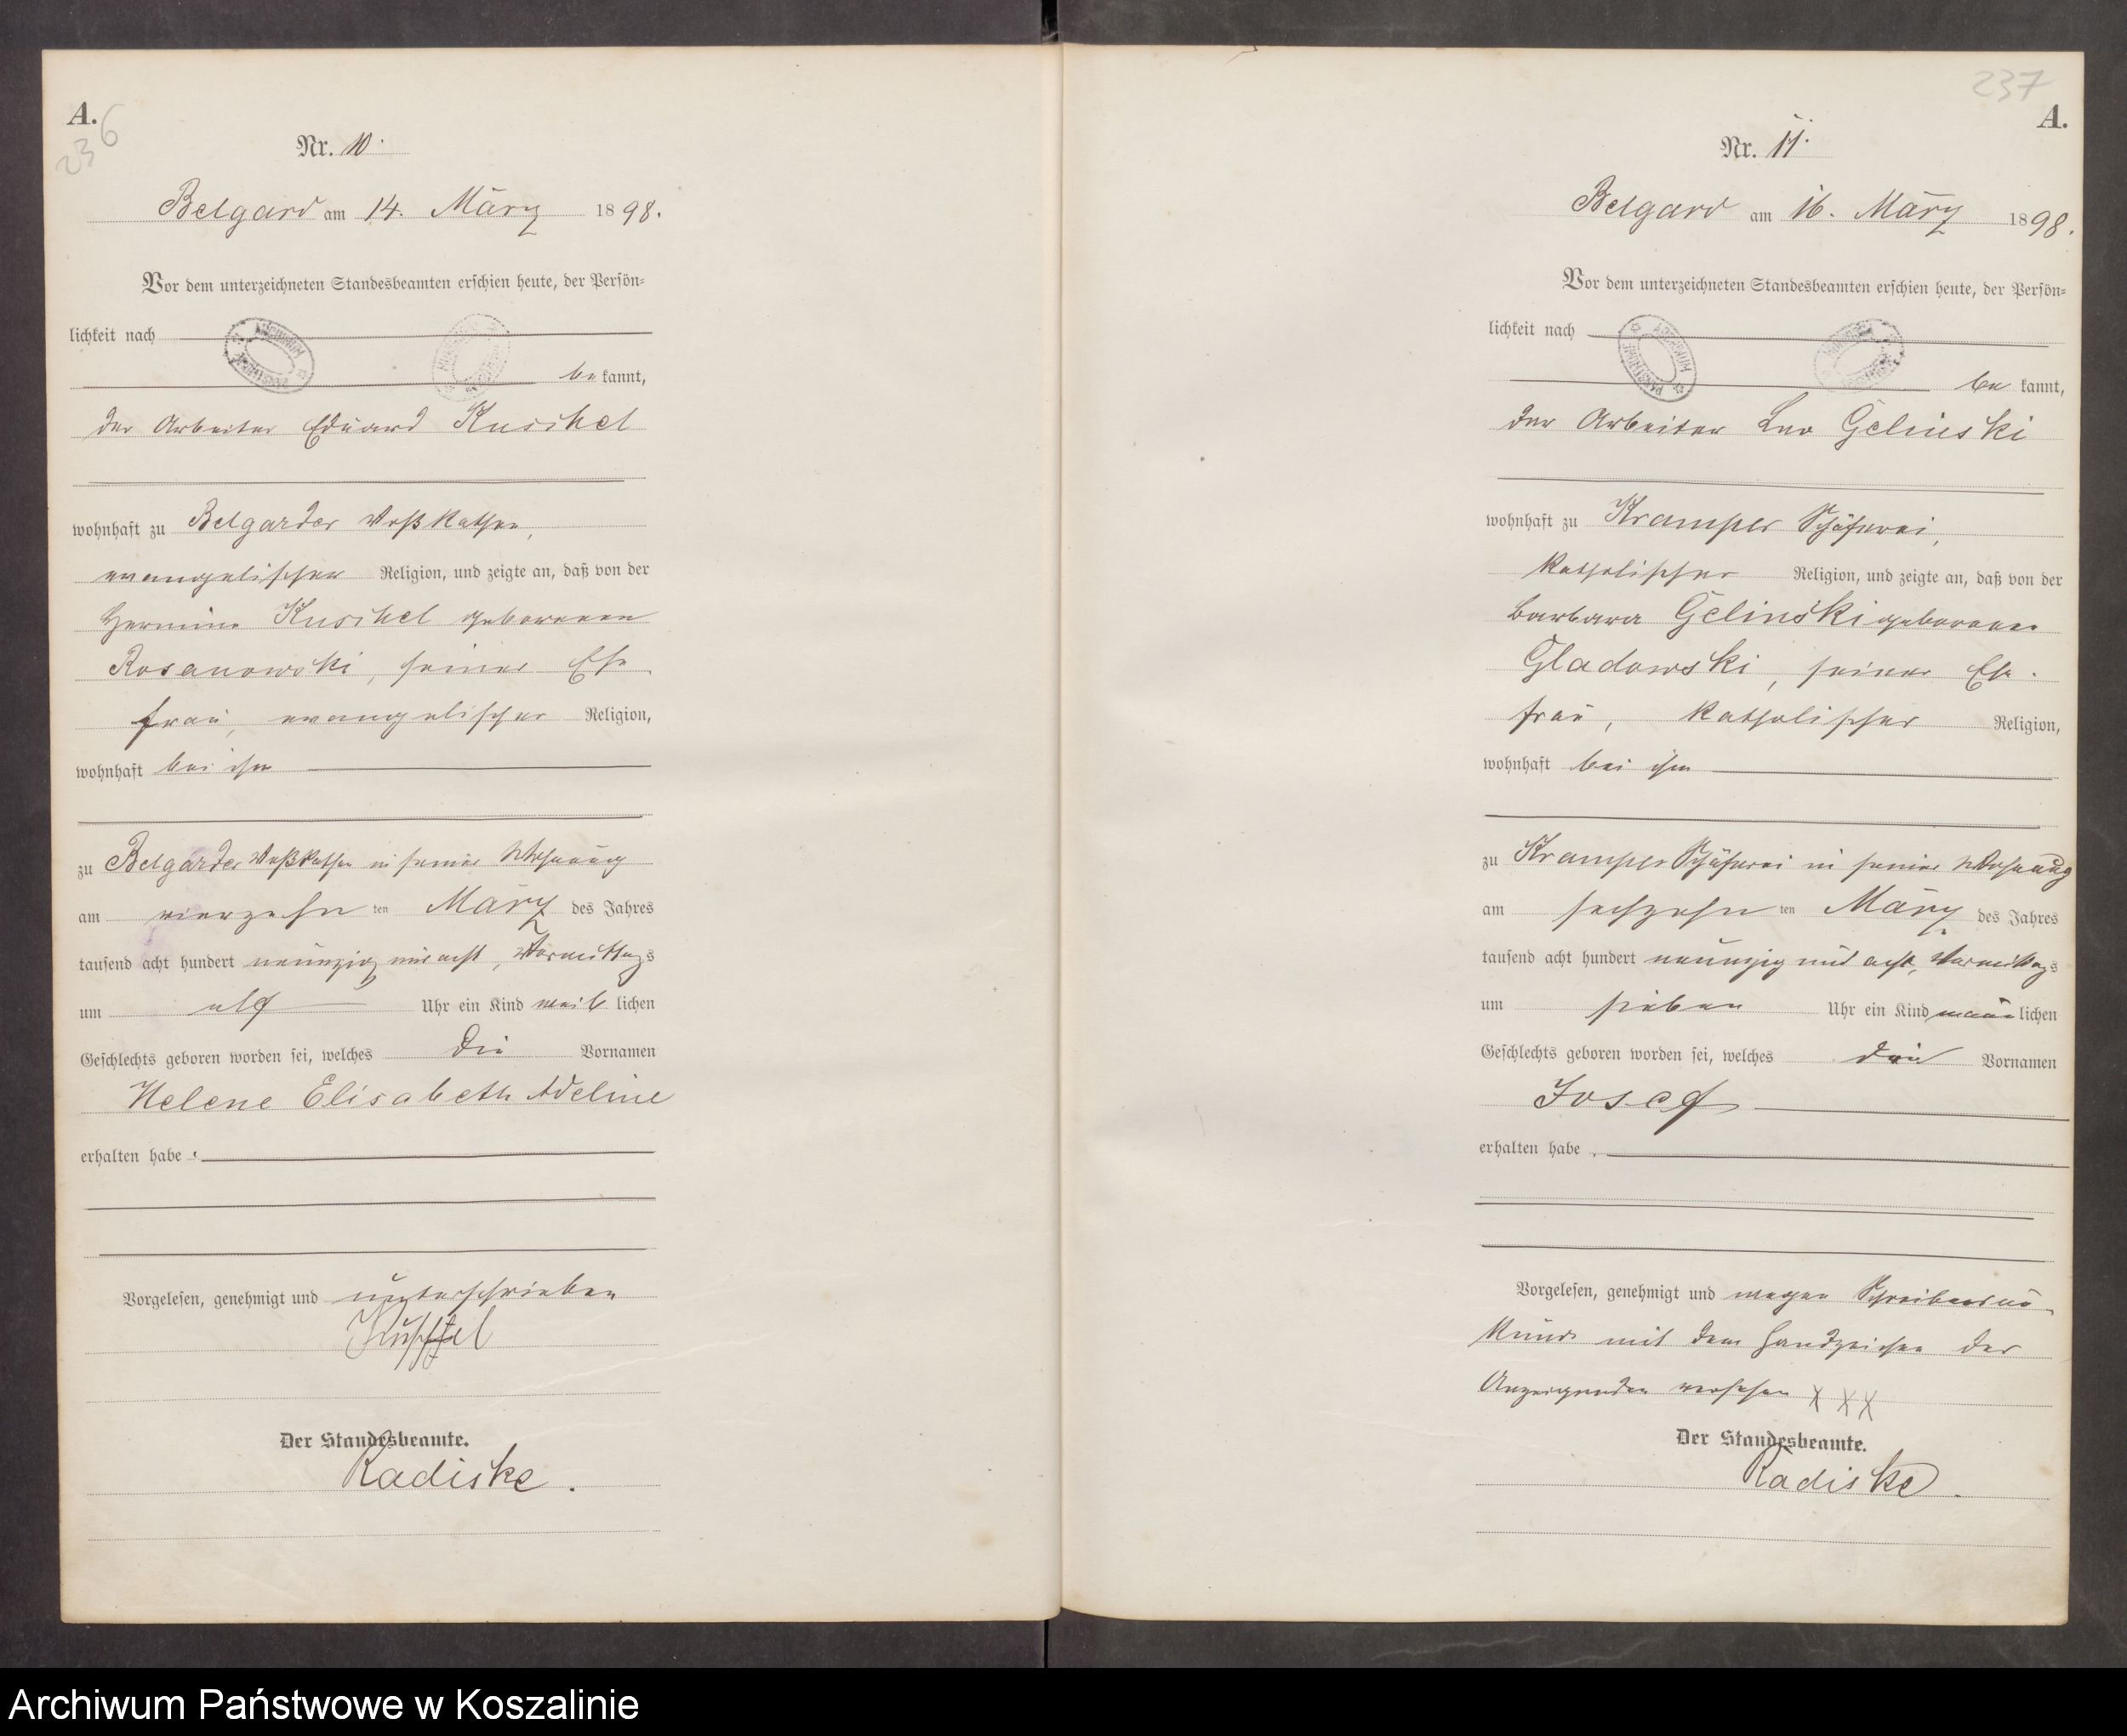 A.
236
Nr. 10.
Belgard am 14. März 1898.
Vor dem unterzeichneten Standesbeamten erschien heute, der Persön-
lichkeit nach
bekannt,
der Arbeiter Eduard Kuschel
wohnhaft zu Belgarder Voßkathen,
evangelischer Religion, und zeigte an, daß von der
Hermine Kuschel geborenen
Rosanowski, seiner Ehe
frau, evangelischer Religion,
wohnhaft bei ihm
zu Belgarder Voßkathen in seiner Wohnung
am vierzehn ten März des Jahres
tausend acht hundert neunzig und acht, Vormittags
um elf Uhr ein Kind weiblichen
Geschlechts geboren worden sei, welches die Vornamen
Helene Elisabeth Adeline
erhalten habe.
Vorgelesen, genehmigt und unterschrieben
Kuschel
Der Standesbeamte.
Radiske.
237
A.
Nr. 11.
Belgard am 16. März 1898.
Vor dem unterzeichneten Standesbeamten erschien heute, der Persön-
lichkeit nach
bekannt,
der Arbeiter Leo Gelinski
wohnhaft zu Kramper Schäferei,
katholischer Religion, und zeigte an, daß von der
Barbara Gelinski geborenen
Gladowski, seiner Ehe-
frau, katholischer Religion,
wohnhaft bei ihm
zu Kramper Schäferei in seiner Wohnung
am sechzehn ten März des Jahres
tausend acht hundert neunzig und acht, Vormittags
um sieben Uhr ein Kind männlichen
Geschlechts geboren worden sei, welches den Vornamen
Josef
erhalten habe.
Vorgelesen, genehmigt und wegen Schreibensun-
kunde mit dem Handzeichen des
Anzeigenden versehen X X X
Der Standesbeamte.
Radiske.
Archiwum Państwowe w Koszalinie